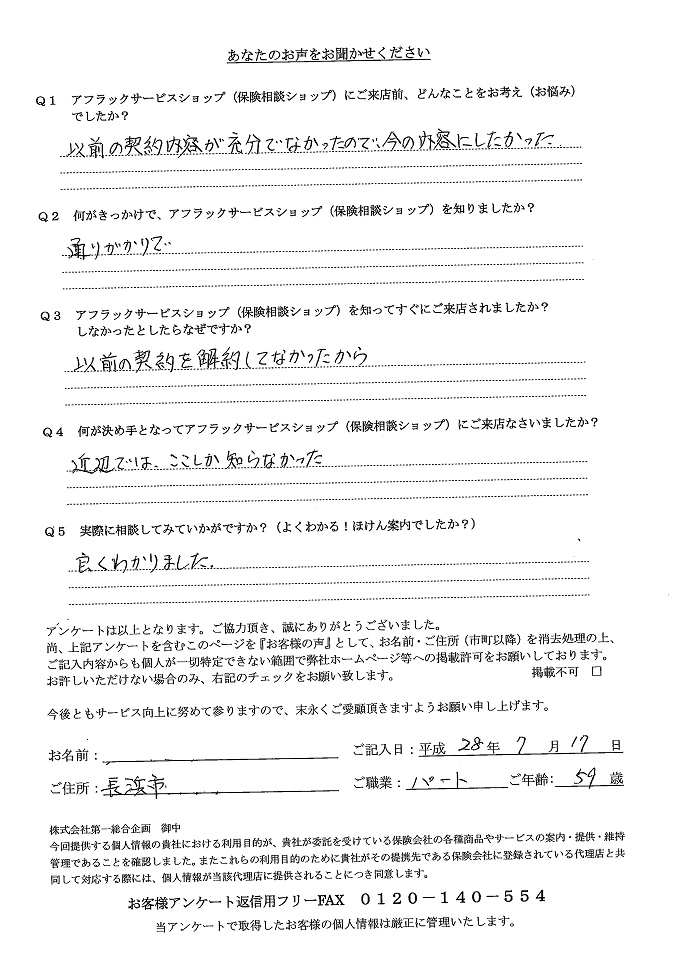 あなたのお声をお聞かせください
Q1 アフラックサービスショップ(保険相談ショップ)にご来店前、どんなことをお考え(お悩み)
でしたか?
以前の契約内容が充分でなかったので、今の内容にしたかった
Q2 何がきっかけで、アフラックサービスショップ(保険相談ショップ)を知りましたか?
通りがかりで
Q3 アフラックサービスショップ(保険相談ショップ)を知ってすぐにご来店されましたか?
しなかったとしたらなぜですか?
以前の契約を解約してなかったから
Q4 何が決め手となってアフラックサービスショップ(保険相談ショップ)にご来店なさいましたか?
近辺では、ここしか知らなかった
Q5 実際に相談してみていかがですか?(よくわかる!ほけん案内でしたか?)
良くわかりました。
アンケートは以上となります。ご協力頂き、誠にありがとうございました。
尚、上記アンケートを含むこのページを『お客様の声』として、お名前・ご住所(市町以降)を消去処理の上、
ご記入内容からも個人が一切特定できない範囲で弊社ホームページ等への掲載許可をお願いしております。
お許しいただけない場合のみ、右記のチェックをお願い致します。 掲載不可 □
今後ともサービス向上に努めて参りますので、末永くご愛顧頂きますようお願い申し上げます。
お名前: ご記入日:平成 28年 7月 17日
ご住所:長浜市 ご職業:パート ご年齢:59歳
株式会社第一総合企画 御中
今回提供する個人情報の貴社における利用目的が、貴社が委託を受けている保険会社の各種商品やサービスの案内・提供・維持
管理であることを確認しました。またこれらの利用目的のために貴社がその提携先である保険会社に登録されている代理店と共
同して対応する際には、個人情報が当該代理店に提供されることにつき同意します。
お客様アンケート返信用フリーFAX 0120-140-554
当アンケートで取得したお客様の個人情報は厳正に管理いたします。